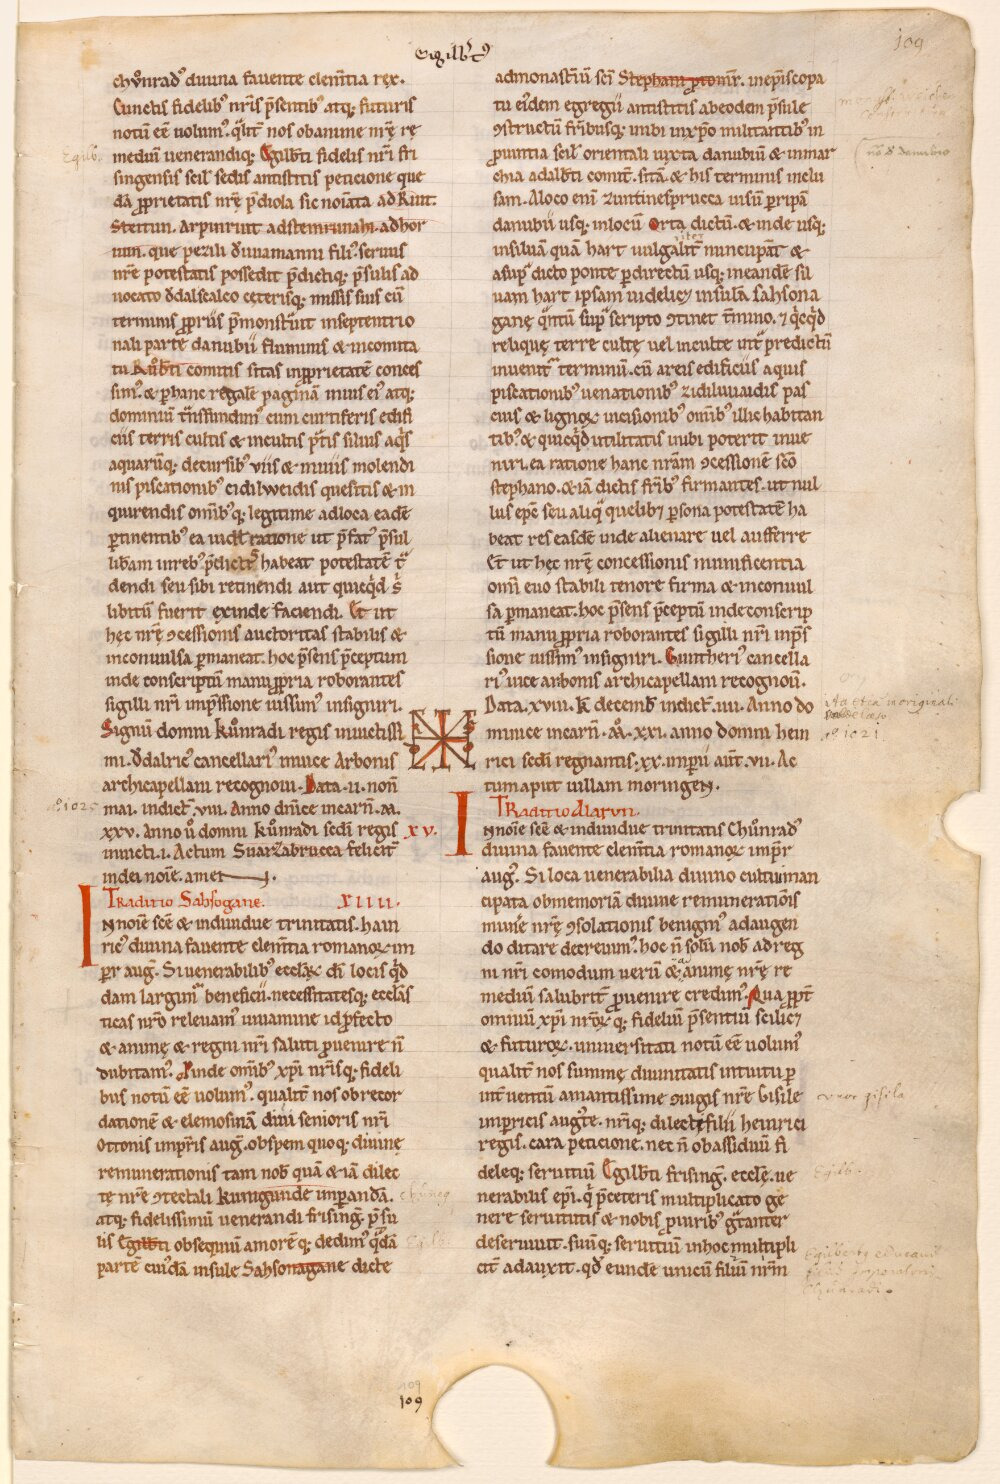 109
Egilbt9
chůnrad9 diuina fauente clem̄tia rex.
Cunctis fidelib9 nr̄is p̄sentib9 atq; futuris
notū eē uolum9. q̄lit̄ nos ob anime nr̄ę re
mediū uenerandiq; Egilbti fidelis nr̄i fri
singensis scil& sedis antistitis peticione que
dā p̄prietatis nr̄ę p̄diola sic noiata ad Riut.
Steitun. Arpinriut ad steininunahi. ad hor
nun. que pezili &
nr̄e potestatis possedit p̄dictiq; p̄sulis ad
uocato odalscalco ceterisq; missis suis cū
terminis p̄priis p̄monstrauit in septentrio
nali parte danubii fluminis & in comita
tu Růdb̄ti comitis sitas in p̄prietatē conces
sim9. & p̄ hanc regalē paginā in ius ei9 atq;
dominiū t̄nsfundim9 cum curtiferis edifi
ciis terris cultis & incultis p̄tis siluis aq̄s
aquarūq; decursib9 uiis & inuiis molendi
nis piscationib9 cidilweidis quesitis & in
quirendis omīb9q; legitime ad loca eadē
p̄tinentib9 ea uidel& ratione ut p̄fat9 p̄sul
lib̄am in reb9 p̄dictis habeat potestatē t̄
dendi seu sibi retinendi aut quicq̄d s̄
libitū fuerit exinde faciendi. Et ut
hęc nr̄ę 9cessionis auctoritas stabilis &
inconuulsa p̄maneat. hoc p̄sens p̄ceptum
inde conscriptū manu p̄pria roborantes
sigilli nr̄i imp̄ssione iussim9 insigniri.
Signū domni kůnradi regis inuictissi
mi. ŏdalric9 cancellari9 inuice Arbonis
archicapellani recognoui. Data. ii. non̄
mai. indict̄. viii. Anno dn̄ice incarn̄. M.
xxv. Anno ů domni kůnradi sc̄di regis
inuicti. i. Actum Suarzabrucca felicit̄
in dei noīe. amen.
Traditio Sahsogane. XIIII.
In noīe scē & indiuidue trinitatis. hain
ric9 diuina fauente clem̄tia romanoꝝ im
p̄r aug̅. Si uenerabilib9 ecclīaꝝ dī locis q̄d
dam largim̄ beneficii. necessitatesq; ecclīas
ticas nr̄o releuam9 iuuamine id p̄fecto
& anime & regni nr̄i saluti p̄uenire n̄
dubitam9. Vnde omīb9 xp̄i nr̄isq; fideli
bus notū eē uolum9. qualit̄ nos ob retor
dationē & elemosinā diui senioris nr̄i
ottonis imp̄ris aug̅. ob spem quoq; diuine
remunerationis tam nob̄ quā & iā dilec
tę nr̄e 9tectali kunigunde imp̄andā.
atq; fidelissimū uenerandi frising̅. p̄su
lis Egilbti obsequiū amorēq; dedim9 q̄dā
partē cui9dā insule Sahsonagane dicte
ad monast̄iū sc̄i Stephani ptomr̄. in episcopa
tu ei9dem egregii antistitis ab eodem p̄sule
9structū fr̄ibusq; inibi in xp̄o militantib9 in
p̄uintia scil& orientali iuxta danubiū & in mar
chia adalb̄ti comit̄. sitā. & his terminis inclu
sam. A loco eni zuntinesprucca uisū p̄ ripā
danubii usq; in locū Orta dictū. & inde usq;
in siluā quā hart uulgarit̄ nuncupāt &
a sup̄ dicto ponte p̄ directū usq; in eandē sil
uam hart ipsam uidelicȝ insulā sahsona
ganę q̄ntū sup̄ scripto 9tinet t̄mino. ⁊ q̄cq̄d
reliquę terre cultę uel inculte int̄ predictū
inuenit̄ terminū. cū areis edificiis aquis
piscationib9 uenationib9 zidiluuaidis pas
cuis & lignoꝝ incisionib9 omīb9 illic habitan
tib9. & quicq̄d utilitatis inibi poterit inue
niri. ea ratione hanc nr̄am 9cessionē sc̄o
stephano. & iā dictis fr̄ib9 firmantes. ut nul
lus ep̄c seu aliq̄ quelibȝ p̄sona potestatē ha
beat res easdē inde alienare uel aufferre
Et ut hęc nr̄ę concessionis munificentia
omī euo stabili tenore firma & inconuul
sa p̄maneat. hoc p̄sens p̄ceptū inde conscrip
tū manu p̄pria roborantes sigilli nr̄i imp̄s
sione iussim9 insigniri. Guntheri9 cancella
ri9 uice arbonis archicapellani recognoui.
Data. xviii. k̄ decemb̄ indict̄. iiii. Anno do
minice incarn̄. M. xxi. anno domni hein
rici sc̄di regnantis. xx. imp̄ii aūt. vii. Ac
tum aput uillam moringen.
Traditio Alarun. XV.
In noīe scē & indiuidue trinitatis Chůnrad9
diuina fauente clem̄tia romanoꝝ imp̄r
aug9. Si loca uenerabilia diuino cultui man
cipata ob memoriā diuine remuneratiōis
mun9e nr̄ę 9solationis benigni9 adaugen
do ditare decreuim9. hoc n̄ solū nob̄ ad reg
ni nr̄i comodum uerū & ad animę nr̄ę re
mediū salubrit̄ p̄uenire credim9. Qua p̄pt̄
omniū xp̄i nr̄oꝝq; fideliū p̄sentiū scilicȝ
& futuroꝝ. uniuersitati notū eē uolum9
qualit̄ nos summę diuinitatis intuitu p̄
int̄uentū amantissime 9iugis nr̄e Gisile
imp̄ricis aug̅te. nr̄iq; dilecte filii heinrici
regis. cara peticione. nec n̄ ob assiduū fi
deleq; seruitiū Egilb̄ti frising̅. ecclę. ue
nerabilis ep̄i. q̄ p̄ ceteris multiplicato ge
nere seruitutis & nobis p̄uirib9 g̅tanter
deseruiuit. suūq; seruitiū in hoc multipli
cit̄ adauxit. qd̄ eunde unicū filiū nr̄m
Egilb.
ao. 1025
no. &. danubio
ita etiā in originali
ao 1021.
uxor gisila
Egilb.
Egilberty educavit
filiū Imperatoris
Chunradi.
109
109